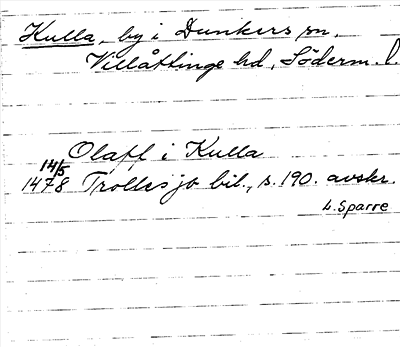 Kulla, by i Dunkers sn,
Villåttinge hd, Söderm. l.
Olaff i Kulla
14/5
1478 Trolles jb bil., s. 190. avskr.
L. Sparre